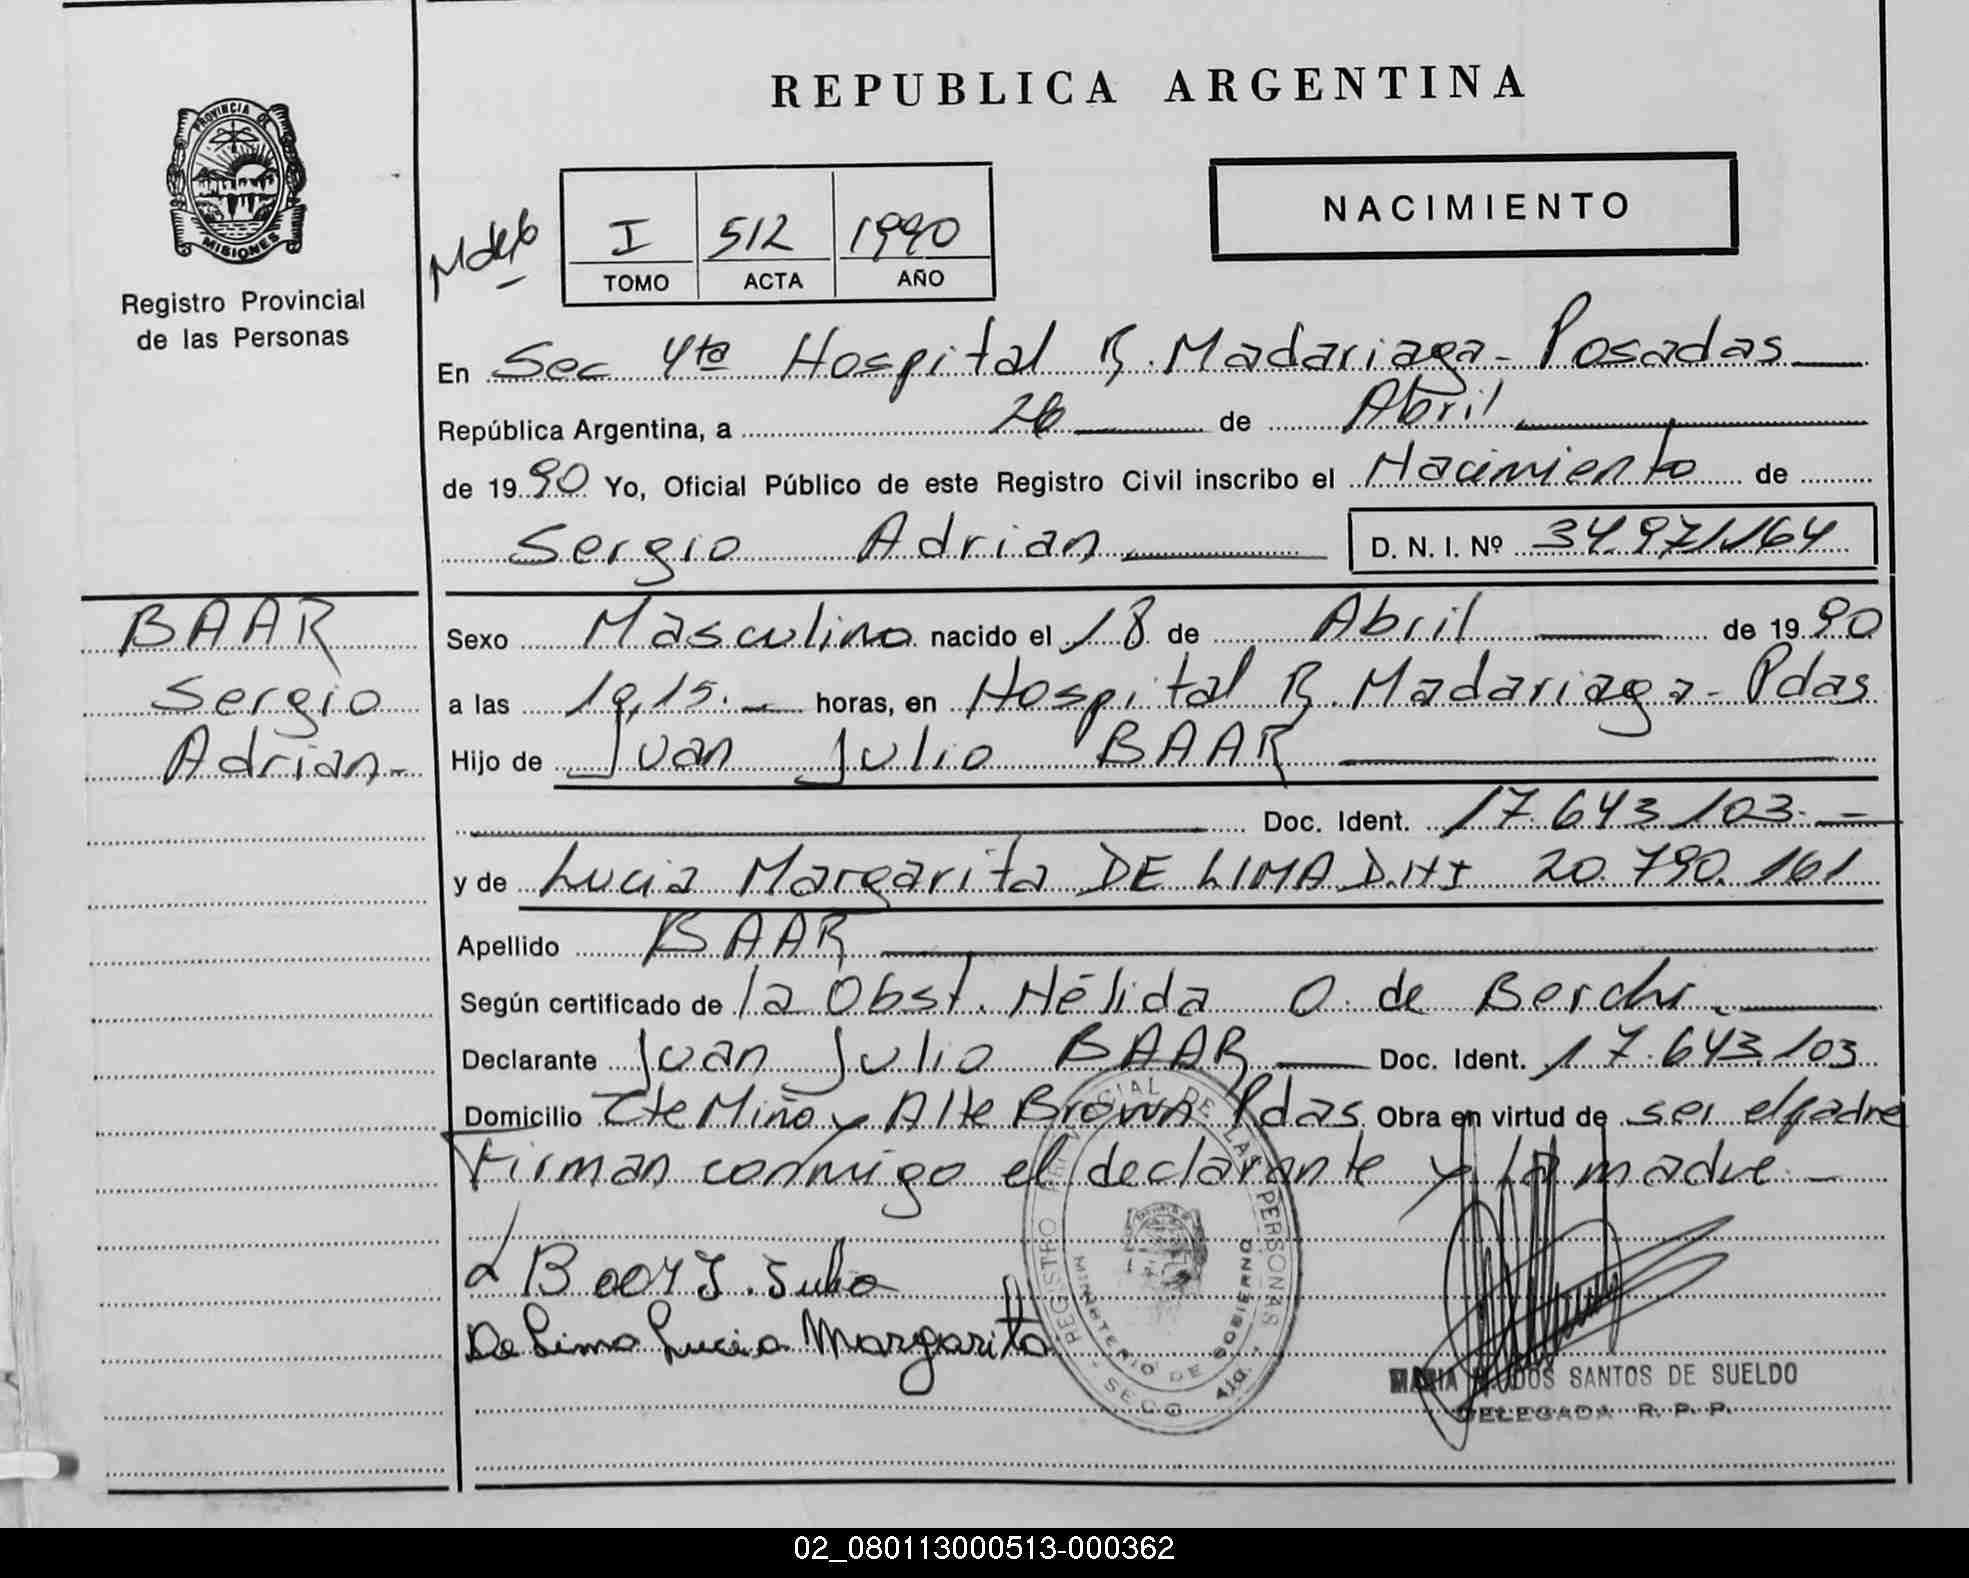 REPUBLICA ARGENTINA
PROVINCIA DE
MISIONES
Registro Provincial
de las Personas
NACIMIENTO
I 512 1990
TOMO ACTA AÑO
En Sec 4ta Hospital R. Madariaga - Posadas
República Argentina, a 26 de Abril
de 1990 Yo, Oficial Público de este Registro Civil inscribo el Nacimiento de
Sergio Adrian D. N. I. Nº 34.971.164
BAAR
Sergio
Adrian-
Sexo Masculino nacido el 18 de Abril de 1990
a las 19,15.- horas, en Hospital R. Madariaga - Pdas
Hijo de Juan Julio BAAR
Doc. Ident. 17.643.103.-
y de Lucia Margarita DE LIMA D.N.I 20.790.161
Apellido BAAR
Según certificado de la Obst. Nélida O. de Berchi.
Declarante Juan Julio BAAR Doc. Ident. 17.643.103
Domicilio Cte Miño y Alte Brown Pdas Obra en virtud de ser el padre
Firman conmigo el declarante y la madre -
Baar J. Julio
De Lima Lucia Margarita
REGISTRO PROVINCIAL DE LAS PERSONAS
MINISTERIO DE GOBIERNO
- SECC 4ta. -
MARIA DOS SANTOS DE SUELDO
DELEGADA R. P. P.
02_080113000513-000362